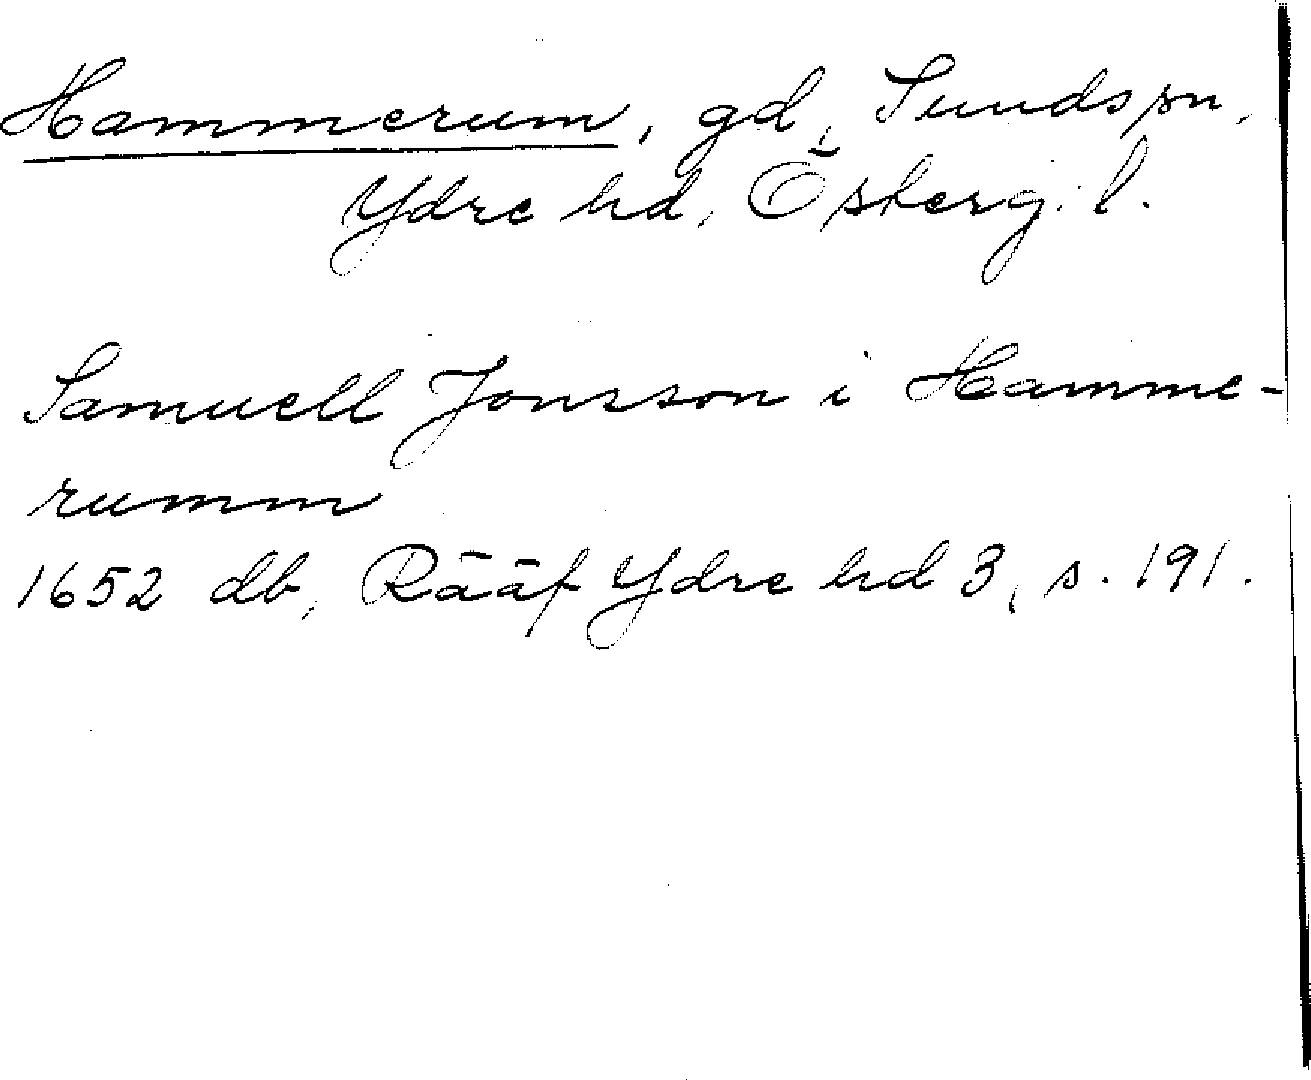 Hammerum, gd, Sunds sn,
Ydre hd, Östergl.
Samuell Jonsson i Hamme-
rumm
1652 db, Rääf Ydre hd 3, s. 191.